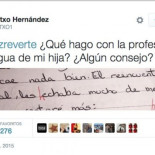 txo Hernández
TXO1
zreverte ¿Qué hago con la profes
gua de mi hija? ¿Algún consejo?
cae nada bien. El reencuent
al, les echaba mucho de me
más:
FAVORITOS
276
2015